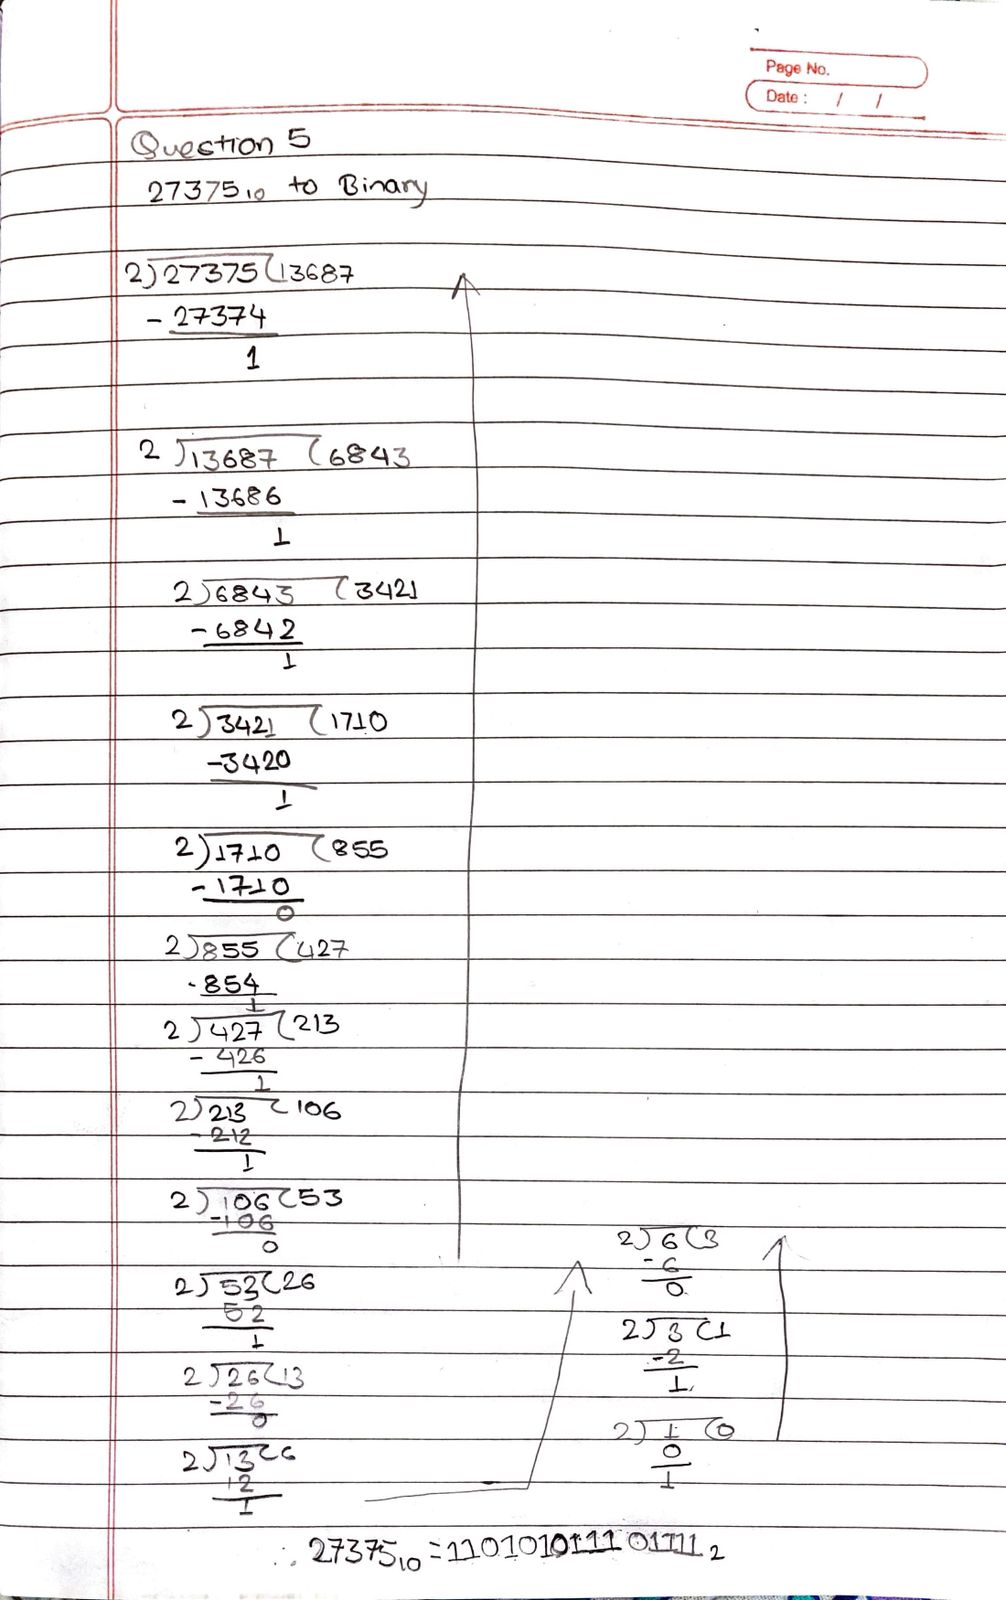 Page No.
Date : / /
Question 5
27375₁₀ to Binary
2)27375(13687
- 27374
1
2)13687(6843
- 13686
1
2)6843(3421
-6842
1
2)3421(1710
-3420
1
2)1710(855
-1710
0
2)855(427
-854
1
2)427(213
- 426
1
2)213(106
-212
1
2)106(53
-106
0
2)53(26
52
1
2)26(13
-26
0
2)13(6
12
1
2)6(3
-6
0
2)3(1
-2
1
2)1(0
0
1
∴ 27375₁₀=110101011101111₂